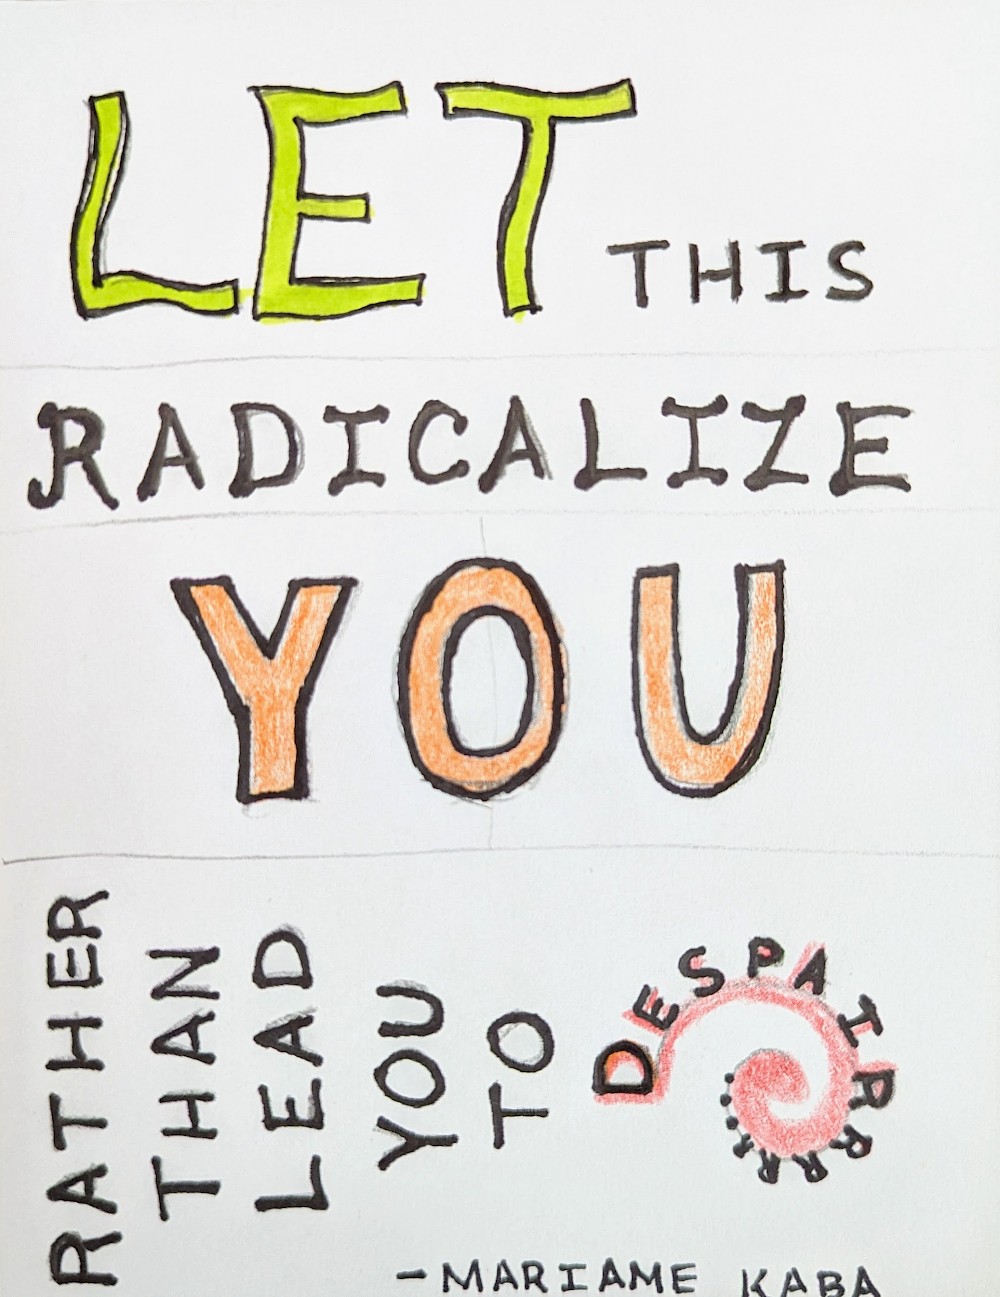 LET THIS
RADICALIZE
YOU
RATHER
THAN
LEAD
YOU
TO
DESPAIRRRR
-MARIAME KABA